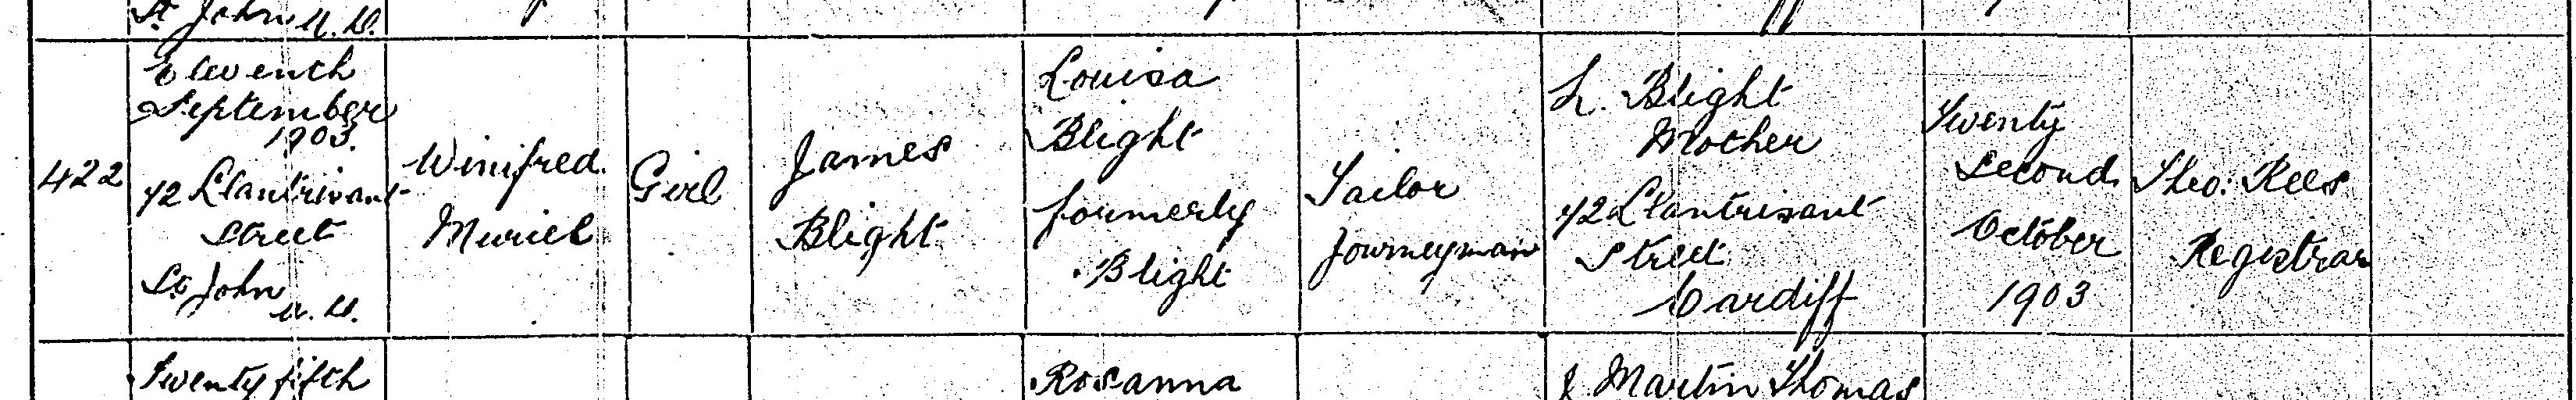 St John U.D.
422
Eleventh
September
1903.
42 Llantrisant
Street
St John
U.D.
Winifred
Muriel
Girl
James
Blight
Louisa
Blight
formerly
Blight
Tailor
Journeyman
L. Blight
Mother
42 Llantrisant
Street
Cardiff
Twenty
Second
October
1903
Theo. Rees
Registrar
Twenty fifth
Rosanna
Martin Thomas